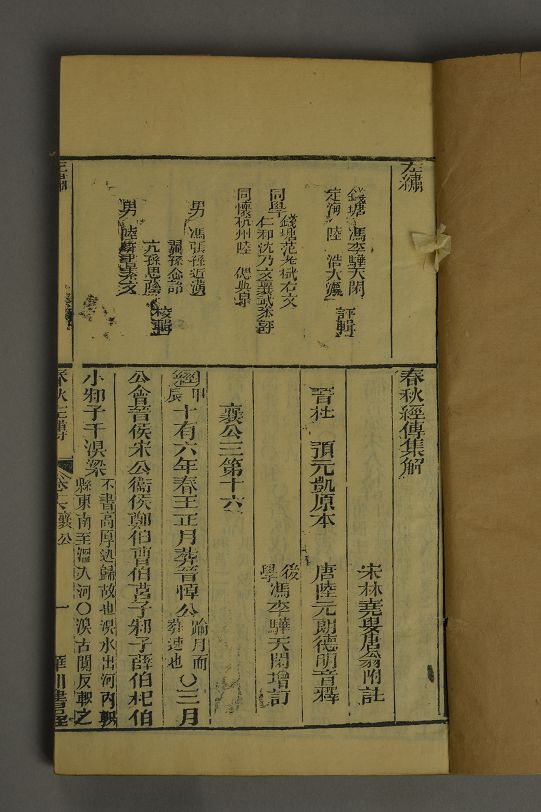 左繡
錢塘 馮李驊天閑
定海 陸 浩大瀛
評輯
同學
錢塘范允斌右文
仁和沈乃文襄武參評
同懷杭州陸 偲典皐
男 馮張孫近潢
翼孫念詒
亢孫思蔭
男 陸
校輯
春秋經傳集解
宋林堯叟唐翁附註
晉杜 預元凱原本
唐陸元朗德明音釋
後學 馮李驊天閑增訂
襄公三第十六
甲辰
經十有六年春王正月葬晉悼公踰月而葬速也〇三月
公會晉侯宋公衛侯鄭伯曹伯莒子邾子薛伯杞伯
小邾子于溴梁不書高厚逃歸故也溴水出河內軹
縣東南至溫入河〇溴古闃反軹之
春秋左傳
襄公
一
華川書屋